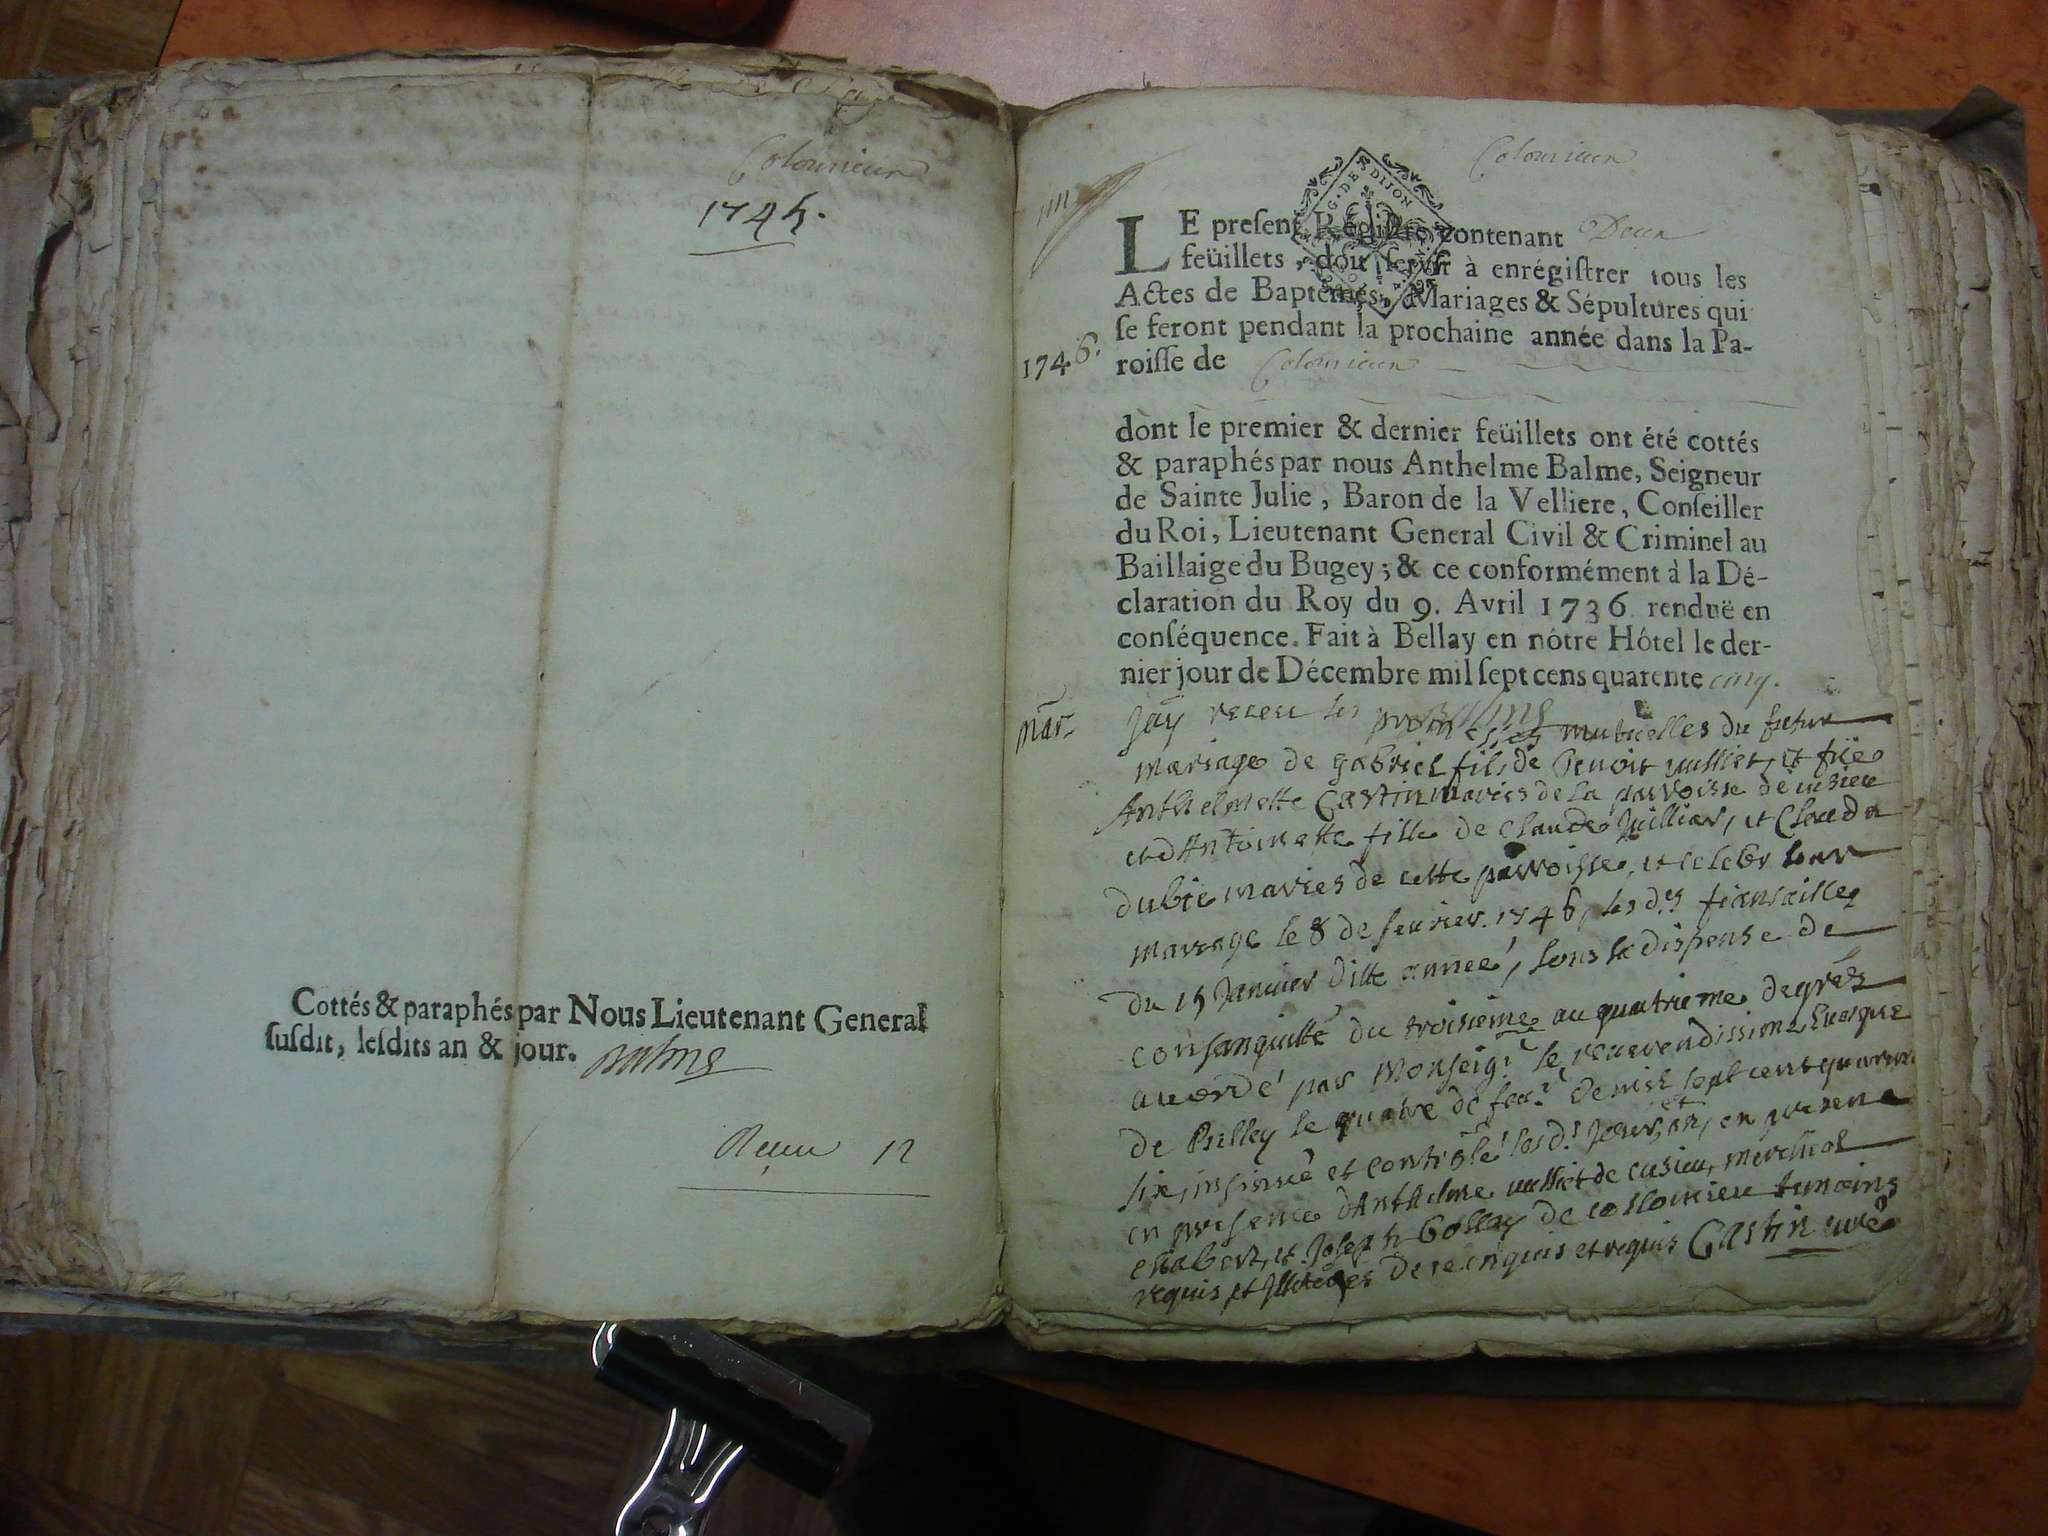 Colomieux
1745.
Cottés & paraphés par Nous Lieutenant General
ſuſdit, leſdits an & jour. Balme
Receu 12
Colomieux
G. DE DIJON
LE preſent Régiſtre contenant Deux
feüillets, doit ſervir à enrégiſtrer tous les
Actes de Baptêmes, Mariages & Sépultures qui
ſe feront pendant la prochaine année dans la Pa-
1746.
roiſſe de Colomieux
dont le premier & dernier feüillets ont été cottés
& paraphés par nous Anthelme Balme, Seigneur
de Sainte Julie, Baron de la Velliere, Conſeiller
du Roi, Lieutenant General Civil & Criminel au
Baillaige du Bugey; & ce conformément à la Dé-
claration du Roy du 9. Avril 1736 renduë en
conſéquence. Fait à Bellay en nôtre Hôtel le der-
nier jour de Décembre mil ſept cens quarente cinq.
Balme
mar.
Jay receu les promesses mutuelles du futur
mariage de gabriel fils de Benoit vulliet, et füe
Anthelmette Castin maries de la parroisse de cusieu
et dAntoinette fille de Claude Jullian, et Clauda
dubie maries de cette parroisse, et celebr leur
mariage le 8 de feurier 1746, les d.es fiansailles
du 15 Janvier ditte année, sous la dispense de
consanguitté du troisieme au quatrieme degrés
accordé par Monseigr le reverendissime Evesque
de Belley le quatre de feur. de mil sept cent quarante
six, insinué et controlé les d. jour, et an, en presence
en presence dAnthelme vulliet de cusieu, merchiol
chabert, et Joseph Gollay de collomieu temoins
requis et Illiterés de ce enquis et requis Castin curé